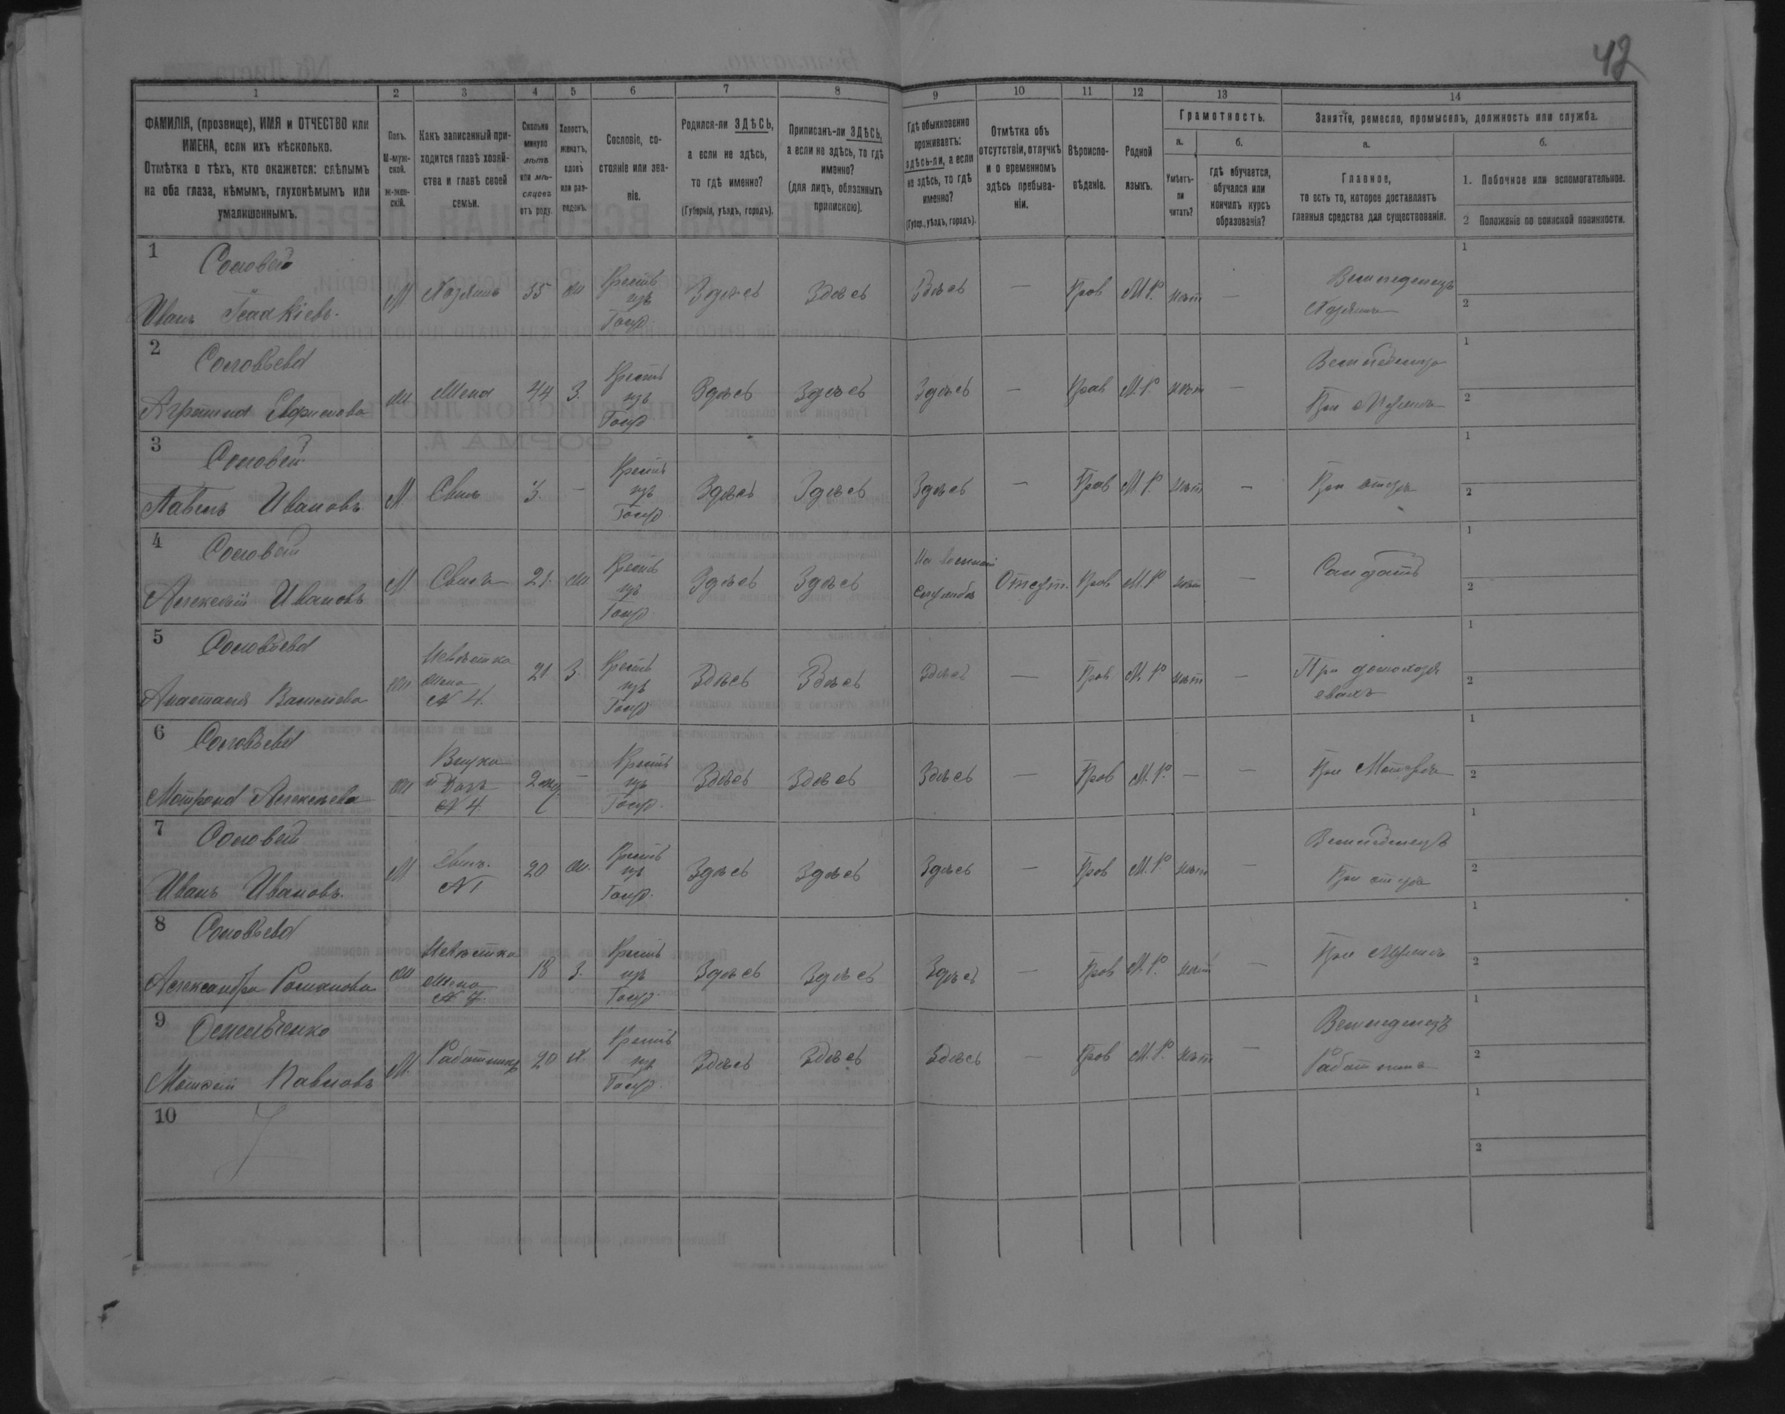 42
1 2 3 4 5 6 7 8 9 10 11 12 13 14
ФАМИЛІЯ, (прозвище), ИМЯ и ОТЧЕСТВО или
ИМЕНА, если ихъ нѣсколько.
Отмѣтка о тѣхъ, кто окажется: слѣпымъ
на оба глаза, нѣмымъ, глухонѣмымъ или
умалишоннымъ.
Полъ.
М-муж-
ской.
Ж-жен-
скій.
Какъ записанный при-
ходится главѣ хозяй-
ства и главѣ своей
семьи.
Сколько
минуло
лѣтъ
или мѣ-
сяцевъ
отъ роду.
Холостъ,
женатъ,
вдовъ
или раз-
веденъ.
Сословіе, со-
стояніе или зва-
ніе.
Родился-ли ЗДѢСЬ,
а если не здѣсь,
то гдѣ именно?
(Губернія, уѣздъ, городъ).
Приписанъ-ли ЗДѢСЬ,
а если не здѣсь, то гдѣ
именно?
(для лицъ, обязанныхъ
припискою).
Гдѣ обыкновенно
проживаетъ:
здѣсь-ли, а если
не здѣсь, то гдѣ
именно?
(Губер., уѣздъ, городъ).
Отмѣтка объ
отсутствіи, отлучкѣ
и о временномъ
здѣсь пребыва-
ніи.
Вѣроиспо-
вѣданіе.
Родной
языкъ.
Грамотность.
а.
Умѣетъ-
ли
читать?
б.
гдѣ обучается,
обучался или
кончилъ курсъ
образованія?
Занятіе, ремесло, промыселъ, должность или служба.
а.
Главное,
то есть то, которое доставляетъ
главныя средства для существованія.
б.
1. Побочное или вспомогательное.
2 Положеніе по воинской повинности.
1 Соловей
Иванъ М Хозяинъ 55 ж Крестъ изъ Госуд Здѣсь Здѣсь Здѣсь — Прав М.Р. нѣт — Земледелецъ Хозяинъ 1 2
2 Соловьева
Жена 44 З. Крестъ изъ Госуд Здѣсь Здѣсь Здѣсь — Прав М.Р. нѣт — Земледелецъ При 1 2
3 Соловей
Павелъ Ивановъ М Сынъ 3. — Крестъ изъ Госуд Здѣсь Здѣсь Здѣсь — Прав М.Р. нѣт — При отцѣ 1 2
4 Соловей
Алексѣй Ивановъ М Сынъ 21. ж Крестъ изъ Госуд Здѣсь Здѣсь На военной службѣ Отсут. Прав М.Р. нѣт — Солдатъ 1 2
5 Соловьева
Анастасія ж Невѣстка жена N 4. 21 З. Крестъ изъ Госуд Здѣсь Здѣсь Здѣсь — Прав М.Р. нѣт — При 1 2
6 Соловьева
Матрона Алексѣева ж Внука N 4. — Крестъ изъ Госуд. Здѣсь Здѣсь Здѣсь — Прав М.Р. — — При Матерѣ 1 2
7 Соловей
Иванъ Ивановъ М Сынъ. N 1 20 ж. Крестъ изъ Госуд. Здѣсь Здѣсь Здѣсь — Прав М.Р. нѣт — Земледелецъ При отцѣ 1 2
8 Соловьева
Александра Романова ж Невѣстка жена N 7. 18 З. Крестъ изъ Госуд. Здѣсь Здѣсь Здѣсь — Прав М.Р. нѣт — При мужѣ 1 2
9
Павловъ М. Работникъ 20 х. Крестъ изъ Госуд. Здѣсь Здѣсь Здѣсь — Прав М.Р. нѣт — Земледелецъ Работникъ 1 2
10 1 2